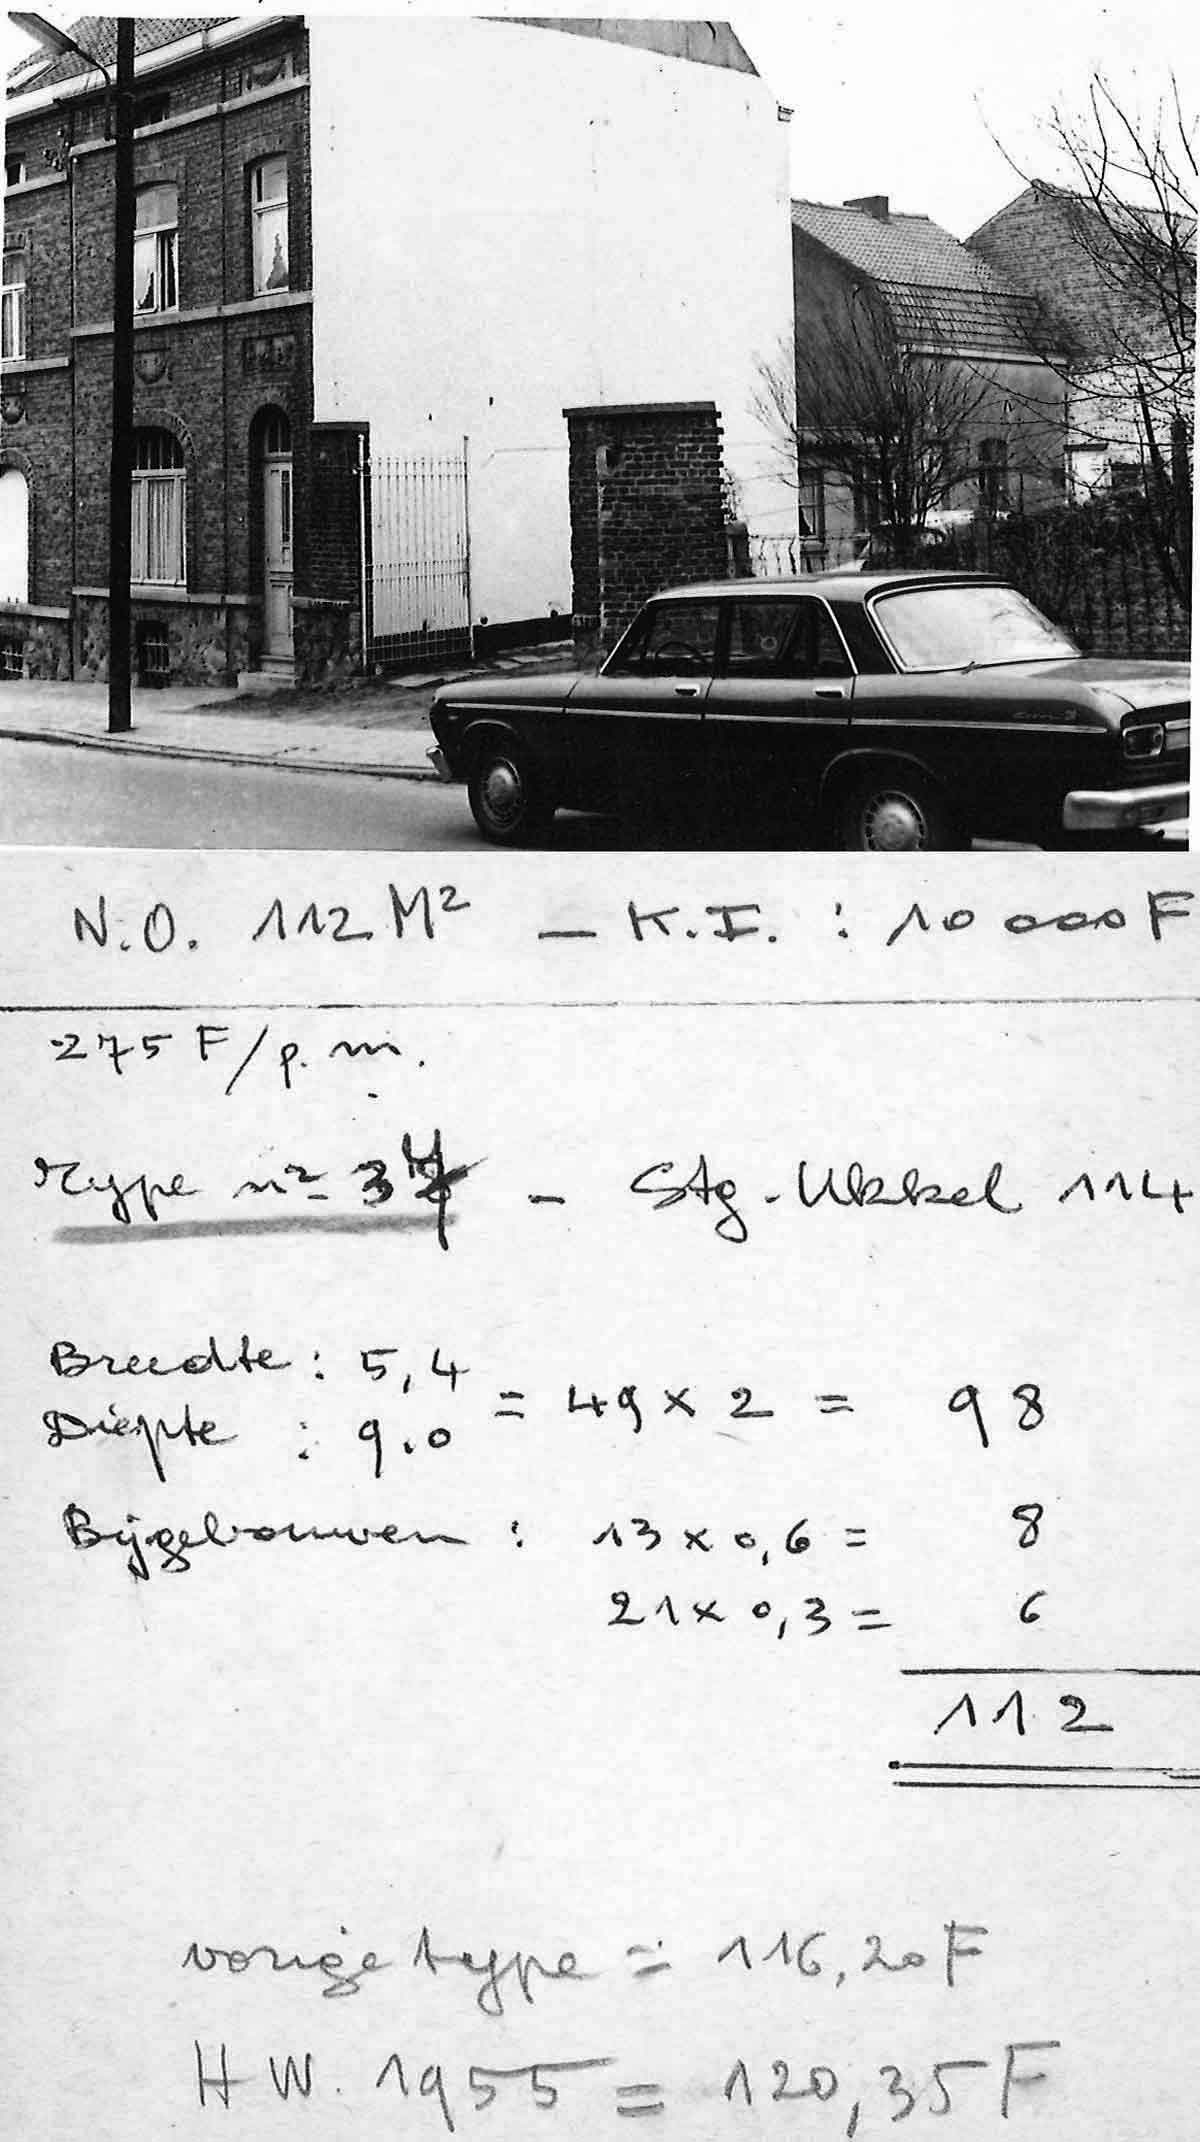 N.O. 112 M² — K.I. : 10 000 F
275 F/p.m.
Type n° 34 - Stg. Ukkel 114
Breedte : 5,4
Diepte : 9.0 = 49 x 2 = 98
Bijgebouwen : 13 x 0,6 = 8
21 x 0,3 = 6
112
vorige type = 116,20 F
H W. 1955 = 120,35 F